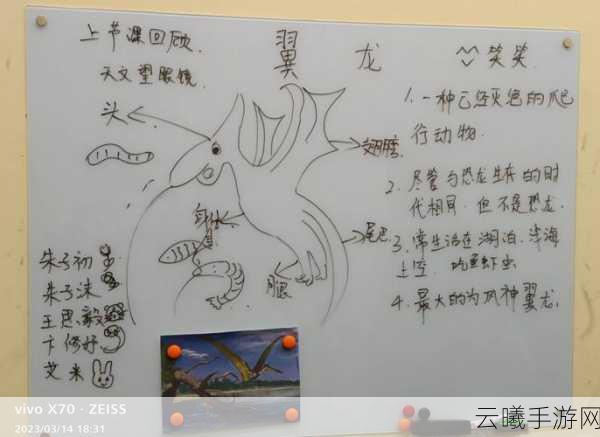 上节课回顾.
天文望眼镜
翼 龙
笑笑
头
翅膀
身体
尾巴
腿
1. 一种已经灭绝的爬
行动物.
2. 尽管与恐龙生存的时
代相同.但不是恐龙.
3. 常生活在湖泊.浅海
上空. 吃鱼虾虫
4. 最大的为风神翼龙.
朱子初
朱子沫
王思毅
卞修妤
艾米
vivo X70 · ZEISS
2023/03/14 18:31
云曦手游网